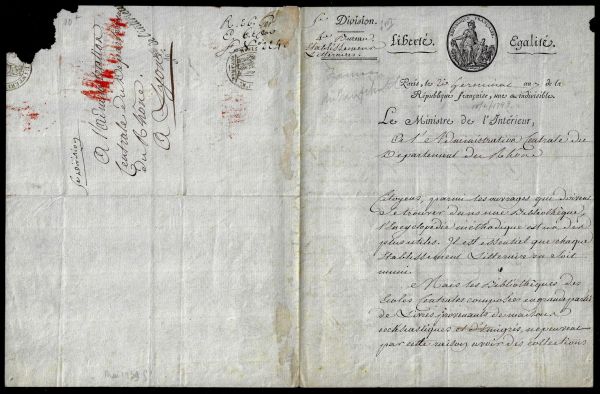 A l'administration
Centrale du Département
du Rhône.
A Lyon
5e Division
5e Division.
Bureau
Etablissemens
Litteraires
Liberté.
Egalité.
Paris, le Germinal an 7 de la
République française, une et indivisible.
Le Ministre de l'Intérieur,
A l'Administration Centrale du
Département du Rhône
Citoyens, parmi les ouvrages qui doivent
se trouver dans une Bibliothèque,
l'Encyclopédie méthodique est un des
plus utiles. Il est essentiel que chaque
Etablissement Litteraire en soit
muni.
Mais les Bibliothèques des
Ecoles Centrales composées en grande partie
de Livres provenants de maisons
ecclésiastiques et d'Emigrés, ne peuvent
par cette raison avoir des collections